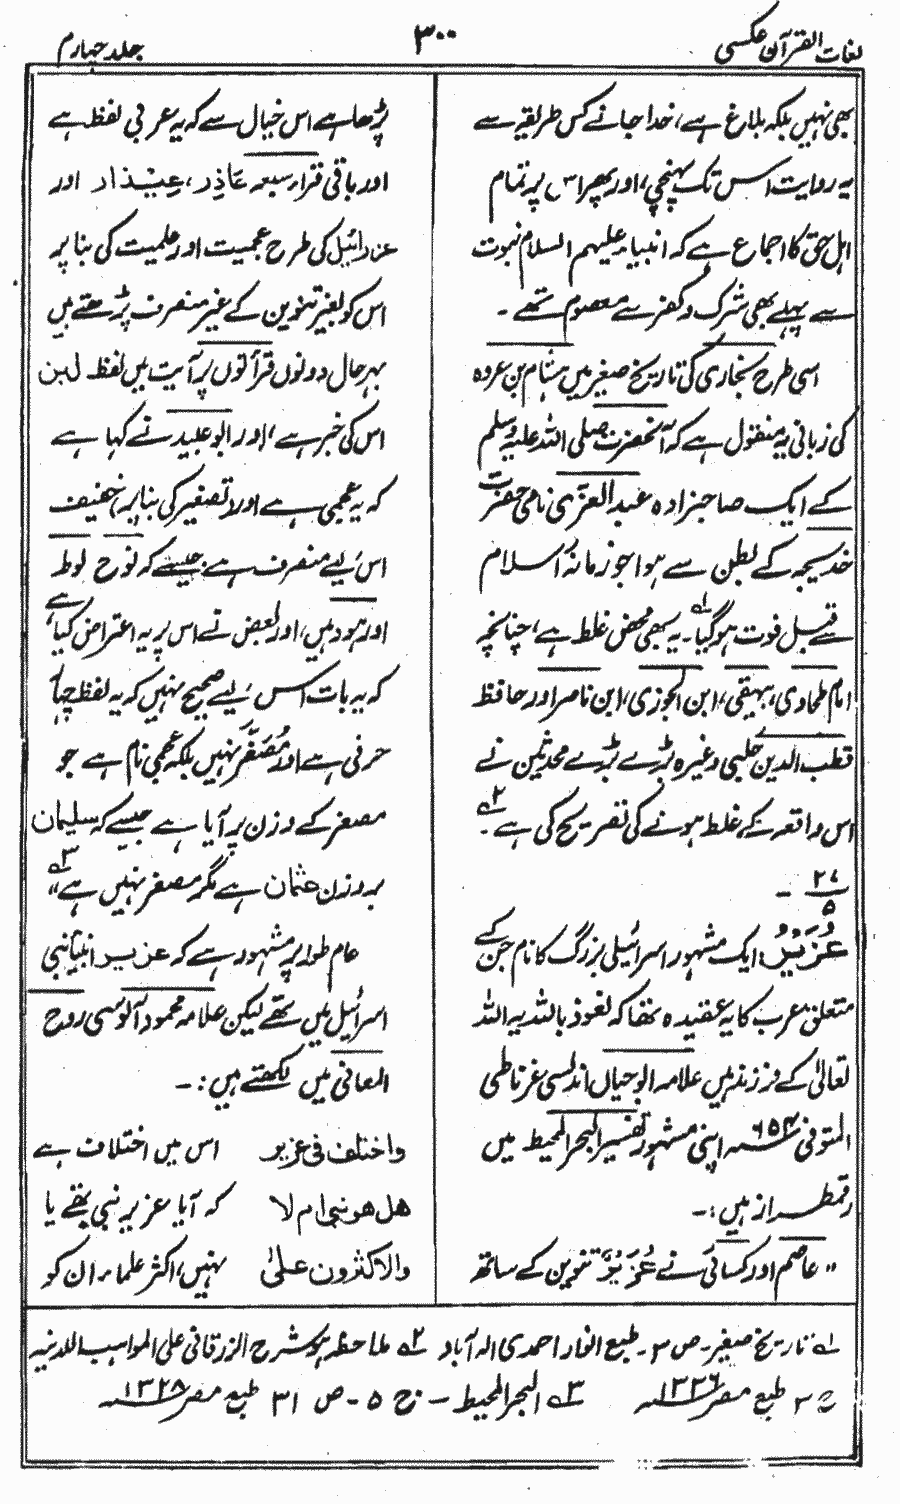 لغات القرآن عکسی
۳۰۰
جلد چہارم
بھی نہیں بلکہ بلاغ ہے، خدا جانے کس طریقہ سے
یہ روایت اس تک پہنچی، اور پھر اس پر تمام
اہل حق کا اجماع ہے کہ انبیاء علیہم السلام نبوت
سے پہلے بھی شرک و کفر سے معصوم تھے۔
اسی طرح بخاری کی تاریخ صغیر میں ہشام بن عروہ
کی زبانی یہ منقول ہے کہ آنحضرت صلی اللہ علیہ وسلم
کے ایک صاحبزادہ عبد العزّٰی نامی حضرت
خدیجہ کے بطن سے ہوا جو زمانۂ اسلام
سے قبل فوت ہو گیا۔ ۱ یہ بھی محض غلط ہے، چنانچہ
امام طحاوی، بیہقی، ابن الجوزی، ابن ناصر اور حافظ
قطب الدین حلبی وغیرہ بڑے بڑے محدثین نے
اس واقعہ کے غلط ہونے کی تصریح کی ہے ۲۔
۲۷/۵ ۔
عُزَیْرٌ: ایک مشہور اسرائیلی بزرگ کا نام جن کے
متعلق عرب کا یہ عقیدہ تھا کہ نعوذ باللہ یہ اللہ
تعالیٰ کے فرزند ہیں علامہ ابو حیان اندلسی غرناطی
المتوفی ۶۵۴ھ اپنی مشہور تفسیر البحر المحیط میں
رقمطراز ہیں:۔
" عاصم اور کسائی نے عُزَیْرٌ تنوین کے ساتھ
پڑھا ہے اس خیال سے کہ یہ عربی لفظ ہے
اور باقی قراء سبعہ عَاذِر، عِیْذار اور
عزرائیل کی طرح عجمیت اور علمیت کی بنا پر
اس کو بغیر تنوین کے غیر منصرف پڑھتے ہیں
بہر حال دونوں قرأتوں پر آیت میں لفظ ابن
اس کی خبر ہے، اور ابو عبید نے کہا ہے
کہ یہ عجمی ہے اور تصغیر کی بنا پر خفیف
اس لیے منصرف ہے جیسے کہ نوح لوط
اور ہود ہیں، اور بعض نے اس پر یہ اعتراض کیا ہے
کہ یہ بات اس لیے صحیح نہیں کہ یہ لفظ چہار
حرفی ہے اور مُصَغَّر نہیں بلکہ عجمی نام ہے جو
مصغر کے وزن پر آیا ہے جیسے کہ سلیمان
بر وزن عثمان ہے مگر مصغر نہیں ہے" ۳
عام طور پر مشہور ہے کہ عزیر انبیائے بنی
اسرائیل میں تھے لیکن علامہ محمود آلوسی روح
المعانی میں لکھتے ہیں:۔
واختلف فی عزیر اس میں اختلاف ہے
ھل ھو نبی ام لا کہ آیا عزیر نبی تھے یا
والاکثرون علیٰ نہیں، اکثر علماء ان کو
۱ تاریخ صغیر۔ ص ۳۔ طبع انوار احمدی الہ آباد ۲ ملاحظہ ہو شرح الزرقانی علی المواہب اللدنیہ
ج ۳ طبع مصر ۱۳۲۶ھ ۳ البحر المحیط ۔ ج ۵ ۔ ص ۳۱ طبع مصر ۱۳۲۸ھ